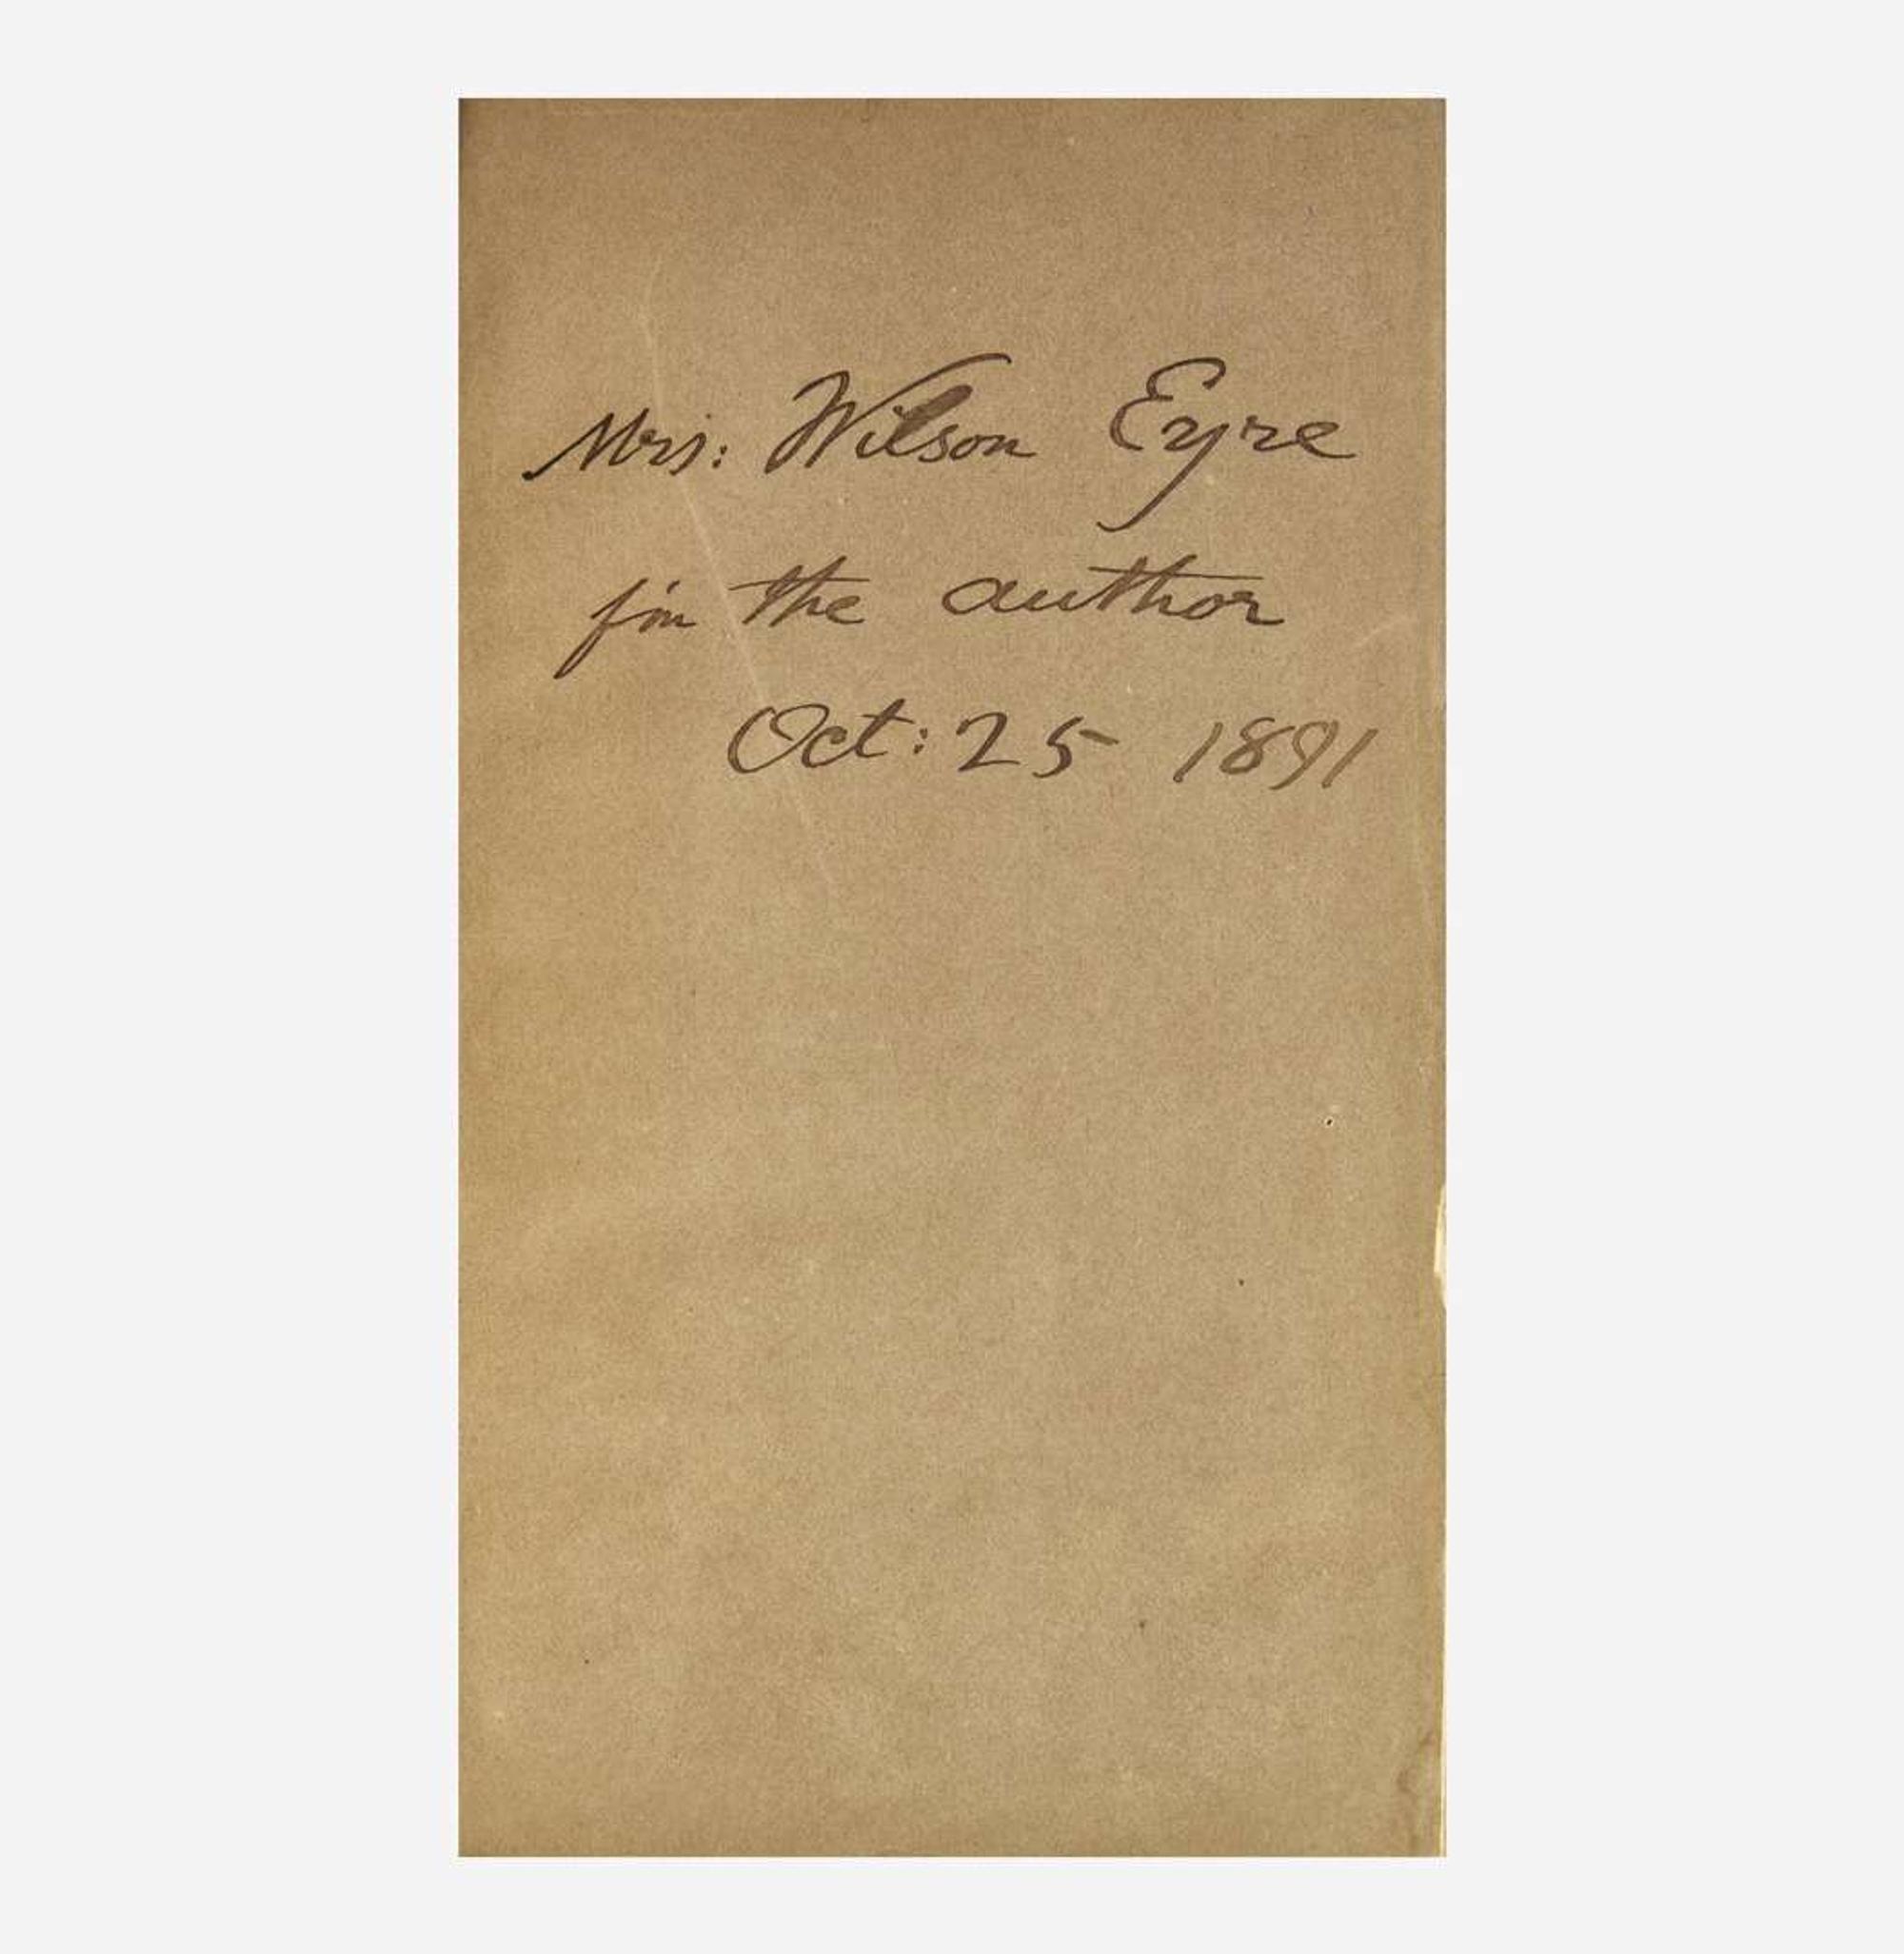 Mrs: Wilson Eyre
f'm the author
Oct: 25 1891